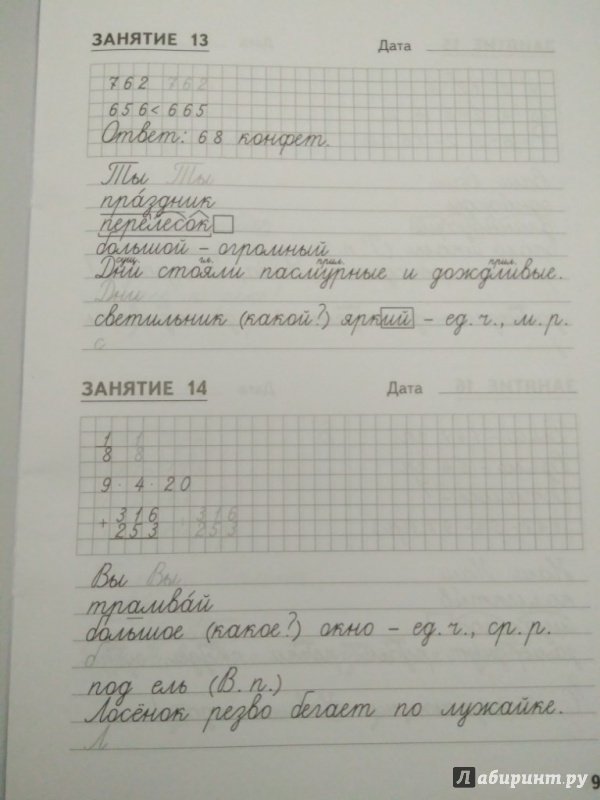 ЗАНЯТИЕ 13 Дата
762 762
656 < 665
Ответ: 68 конфет.
Ты Ты
пра́здник
перелесок
большой – огромный
сущ. гл. прил. прил.
Дни стояли пасмурные и дождливые.
Дни
светильник (какой?) яркий – ед. ч., м. р.
с
ЗАНЯТИЕ 14 Дата
1 1
8 8
9 · 4 · 20
+ 316 + 316
253 253
Вы Вы
трамва́й
большое (какое?) окно – ед. ч., ср. р.
б
под ель (В. п.)
Лосёнок резво бегает по лужайке.
Л
9
Лабиринт.ру